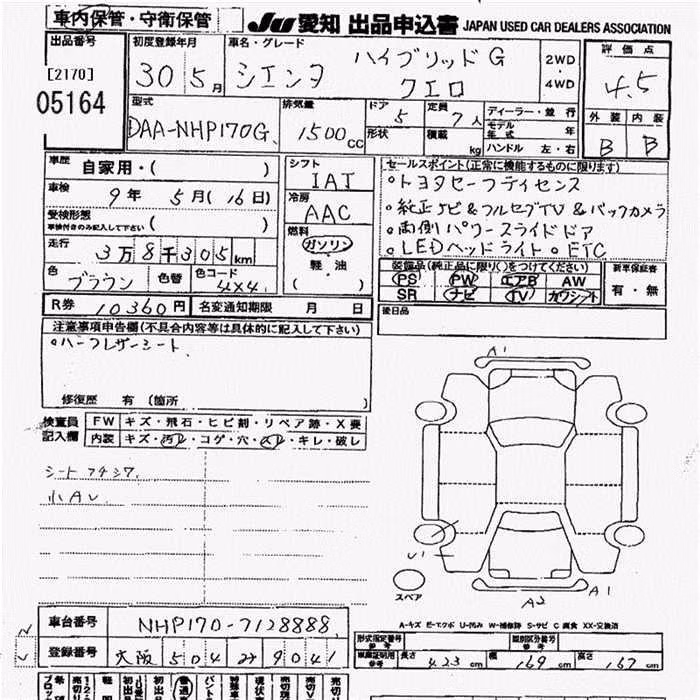 車内保管・守衛保管
JU 愛知 出品申込書 JAPAN USED CAR DEALERS ASSOCIATION
出品番号
[2170]
05164
初度登録年月
30 5月
車名・グレード
シエンタ
ハイブリッドG
クエロ
2WD
・
4WD
評価点
4.5
外装 内装
B B
型式
DAA-NHP170G
排気量
1500cc
ドア
5
形状
定員
7人
積載
kg
ディーラー・並行
モデル年式 年
ハンドル 左・右
車歴 自家用・( )
車検 9年 5月(16日)
受検形態
車検付きのみ記入して下さい ( )
走行 3万8千305km
色 ブラウン 色替 色コード 4X4
シフト
IAT
冷房
AAC
燃料
ガソリン
・
軽・油
( )
セールスポイント(正常に機能するものに限ります)
・トヨタセーフティセンス
・純正ナビ&フルセグTV&バックカメラ
・両側パワースライドドア
・LEDヘッドライト・ETC
装備品(純正品に限り○をつけてください)
PS PW エアB AW
SR ナビ TV カワシート
新車保証書
有・無
後日品
R券 10360円 名変通知期限 月 日
注意事項申告欄(不具合内容等は具体的に記入して下さい)
・ハーフレザーシート
修復歴 有 (箇所 )
検査員記入欄
FW キズ・飛石・ヒビ割・リペア跡・X要
内装 キズ・汚レ・コゲ・穴・スレ・キレ・破レ
小AU
A1
U1
スペア
A2
A1
A-キズ E-エクボ U-凹み W-補修跡 S-サビ C 腐食 XX-交換済
車台番号 NHP170-7128888
登録番号 大阪 504 9041
形式指定番号 参考
類別区分番号 参考
車庫証明用 参考 長さ 423cm 幅 169cm 高さ 167cm